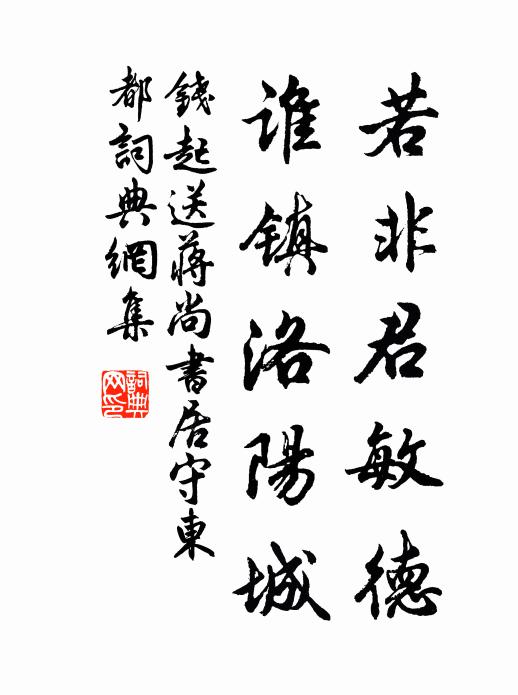 若非君敏德
谁鎮洛陽城
錢起送蔣尚書居守東
都詞典網集
詞典
网印